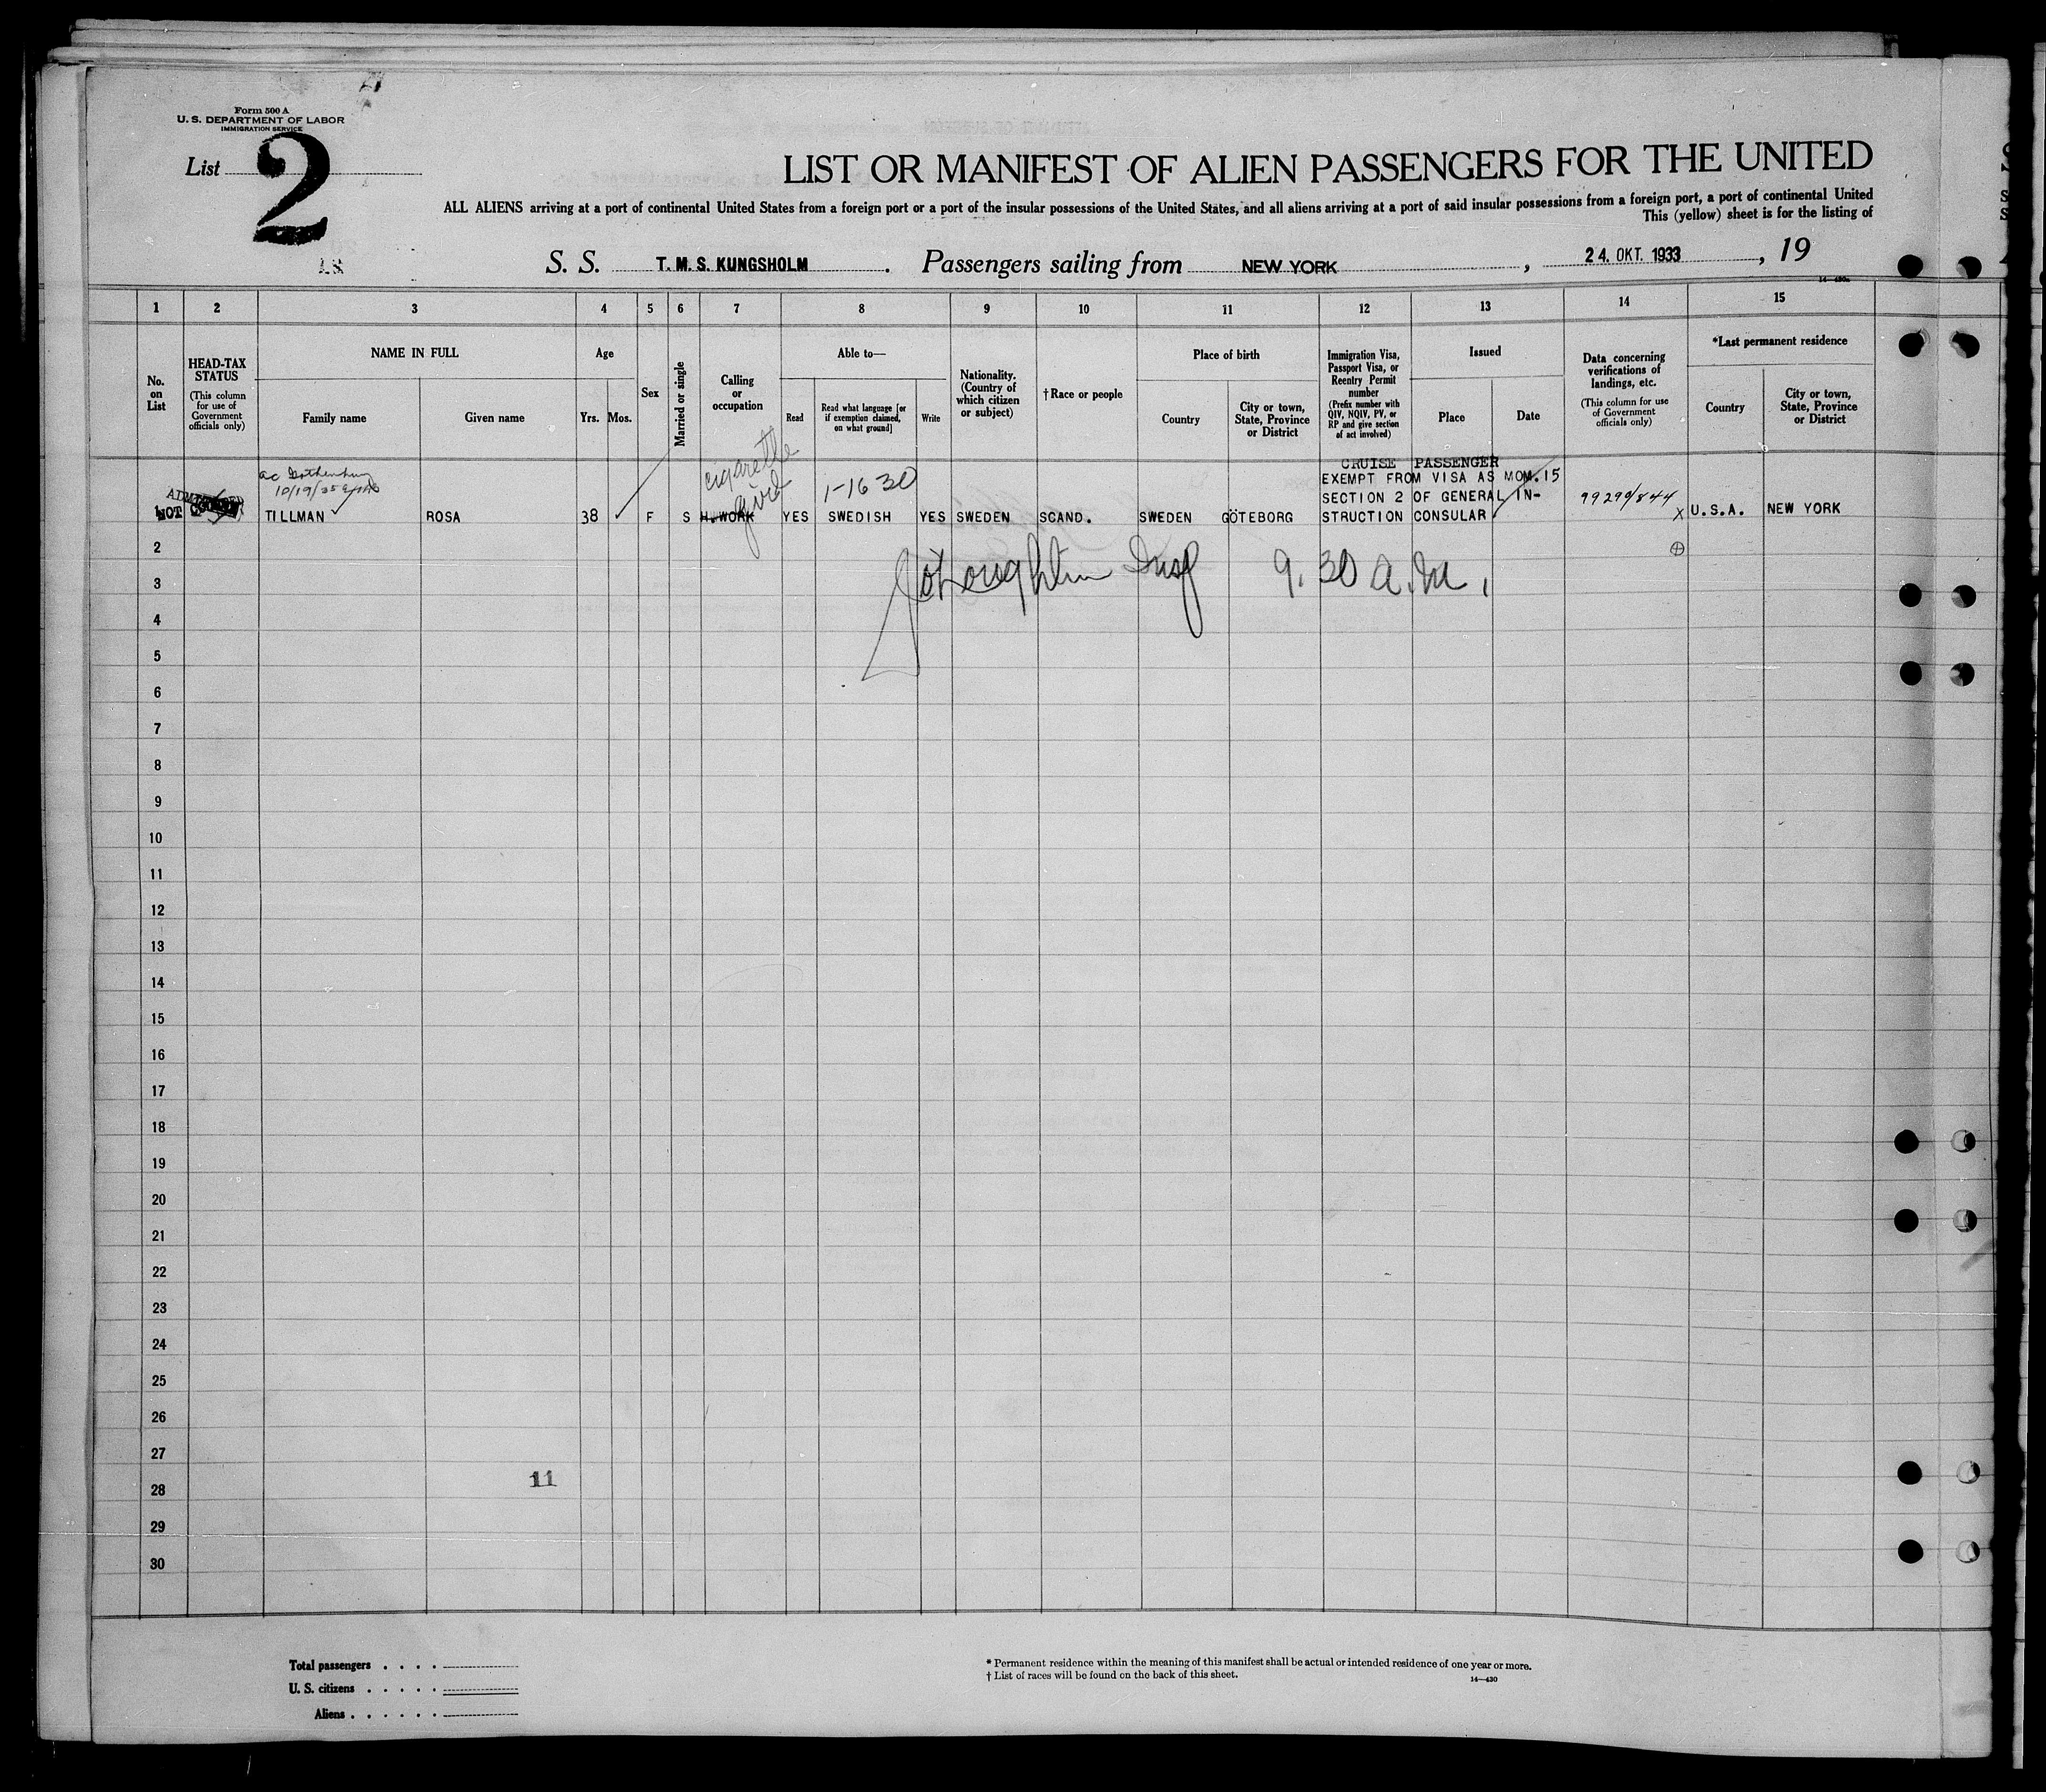 Form 500 A
U. S. DEPARTMENT OF LABOR
IMMIGRATION SERVICE
List 2
LIST OR MANIFEST OF ALIEN PASSENGERS FOR THE UNITED
ALL ALIENS arriving at a port of continental United States from a foreign port or a port of the insular possessions of the United States, and all aliens arriving at a port of said insular possessions from a foreign port, a port of continental United
This (yellow) sheet is for the listing of
S. S. T. M. S. KUNGSHOLM . Passengers sailing from NEW YORK , 24. OKT. 1933 , 19
14—430a
1 2 3 4 5 6 7 8 9 10 11 12 13 14 15
No. on List
HEAD-TAX STATUS
(This column for use of Government officials only)
NAME IN FULL
Family name
Given name
Age
Yrs. Mos.
Sex
Married or single
Calling or occupation
Able to—
Read
Read what language [or if exemption claimed, on what ground]
Write
Nationality. (Country of which citizen or subject)
† Race or people
Place of birth
Country
City or town, State, Province or District
Immigration Visa, Passport Visa, or Reentry Permit number
(Prefix number with QIV, NQIV, PV, or RP and give section of act involved)
Issued
Place
Date
Data concerning verifications of landings, etc.
(This column for use of Government officials only)
*Last permanent residence
Country
City or town, State, Province or District
10/19/35
cigarette
girl
1-16 30
CRUISE PASSENGER
EXEMPT FROM VISA AS MOM.15
SECTION 2 OF GENERAL IN-
99299/844
1 NOT TILLMAN ROSA 38 F S H.WORK YES SWEDISH YES SWEDEN SCAND. SWEDEN GÖTEBORG STRUCTION CONSULAR X U.S.A. NEW YORK
2
Insp 9.30 a.m.
3
4
5
6
7
8
9
10
11
12
13
14
15
16
17
18
19
20
21
22
23
24
25
26
27
11
28
29
30
Total passengers . . . .
U. S. citizens . . . . .
Aliens . . . . . .
* Permanent residence within the meaning of this manifest shall be actual or intended residence of one year or more.
† List of races will be found on the back of this sheet.
14—430